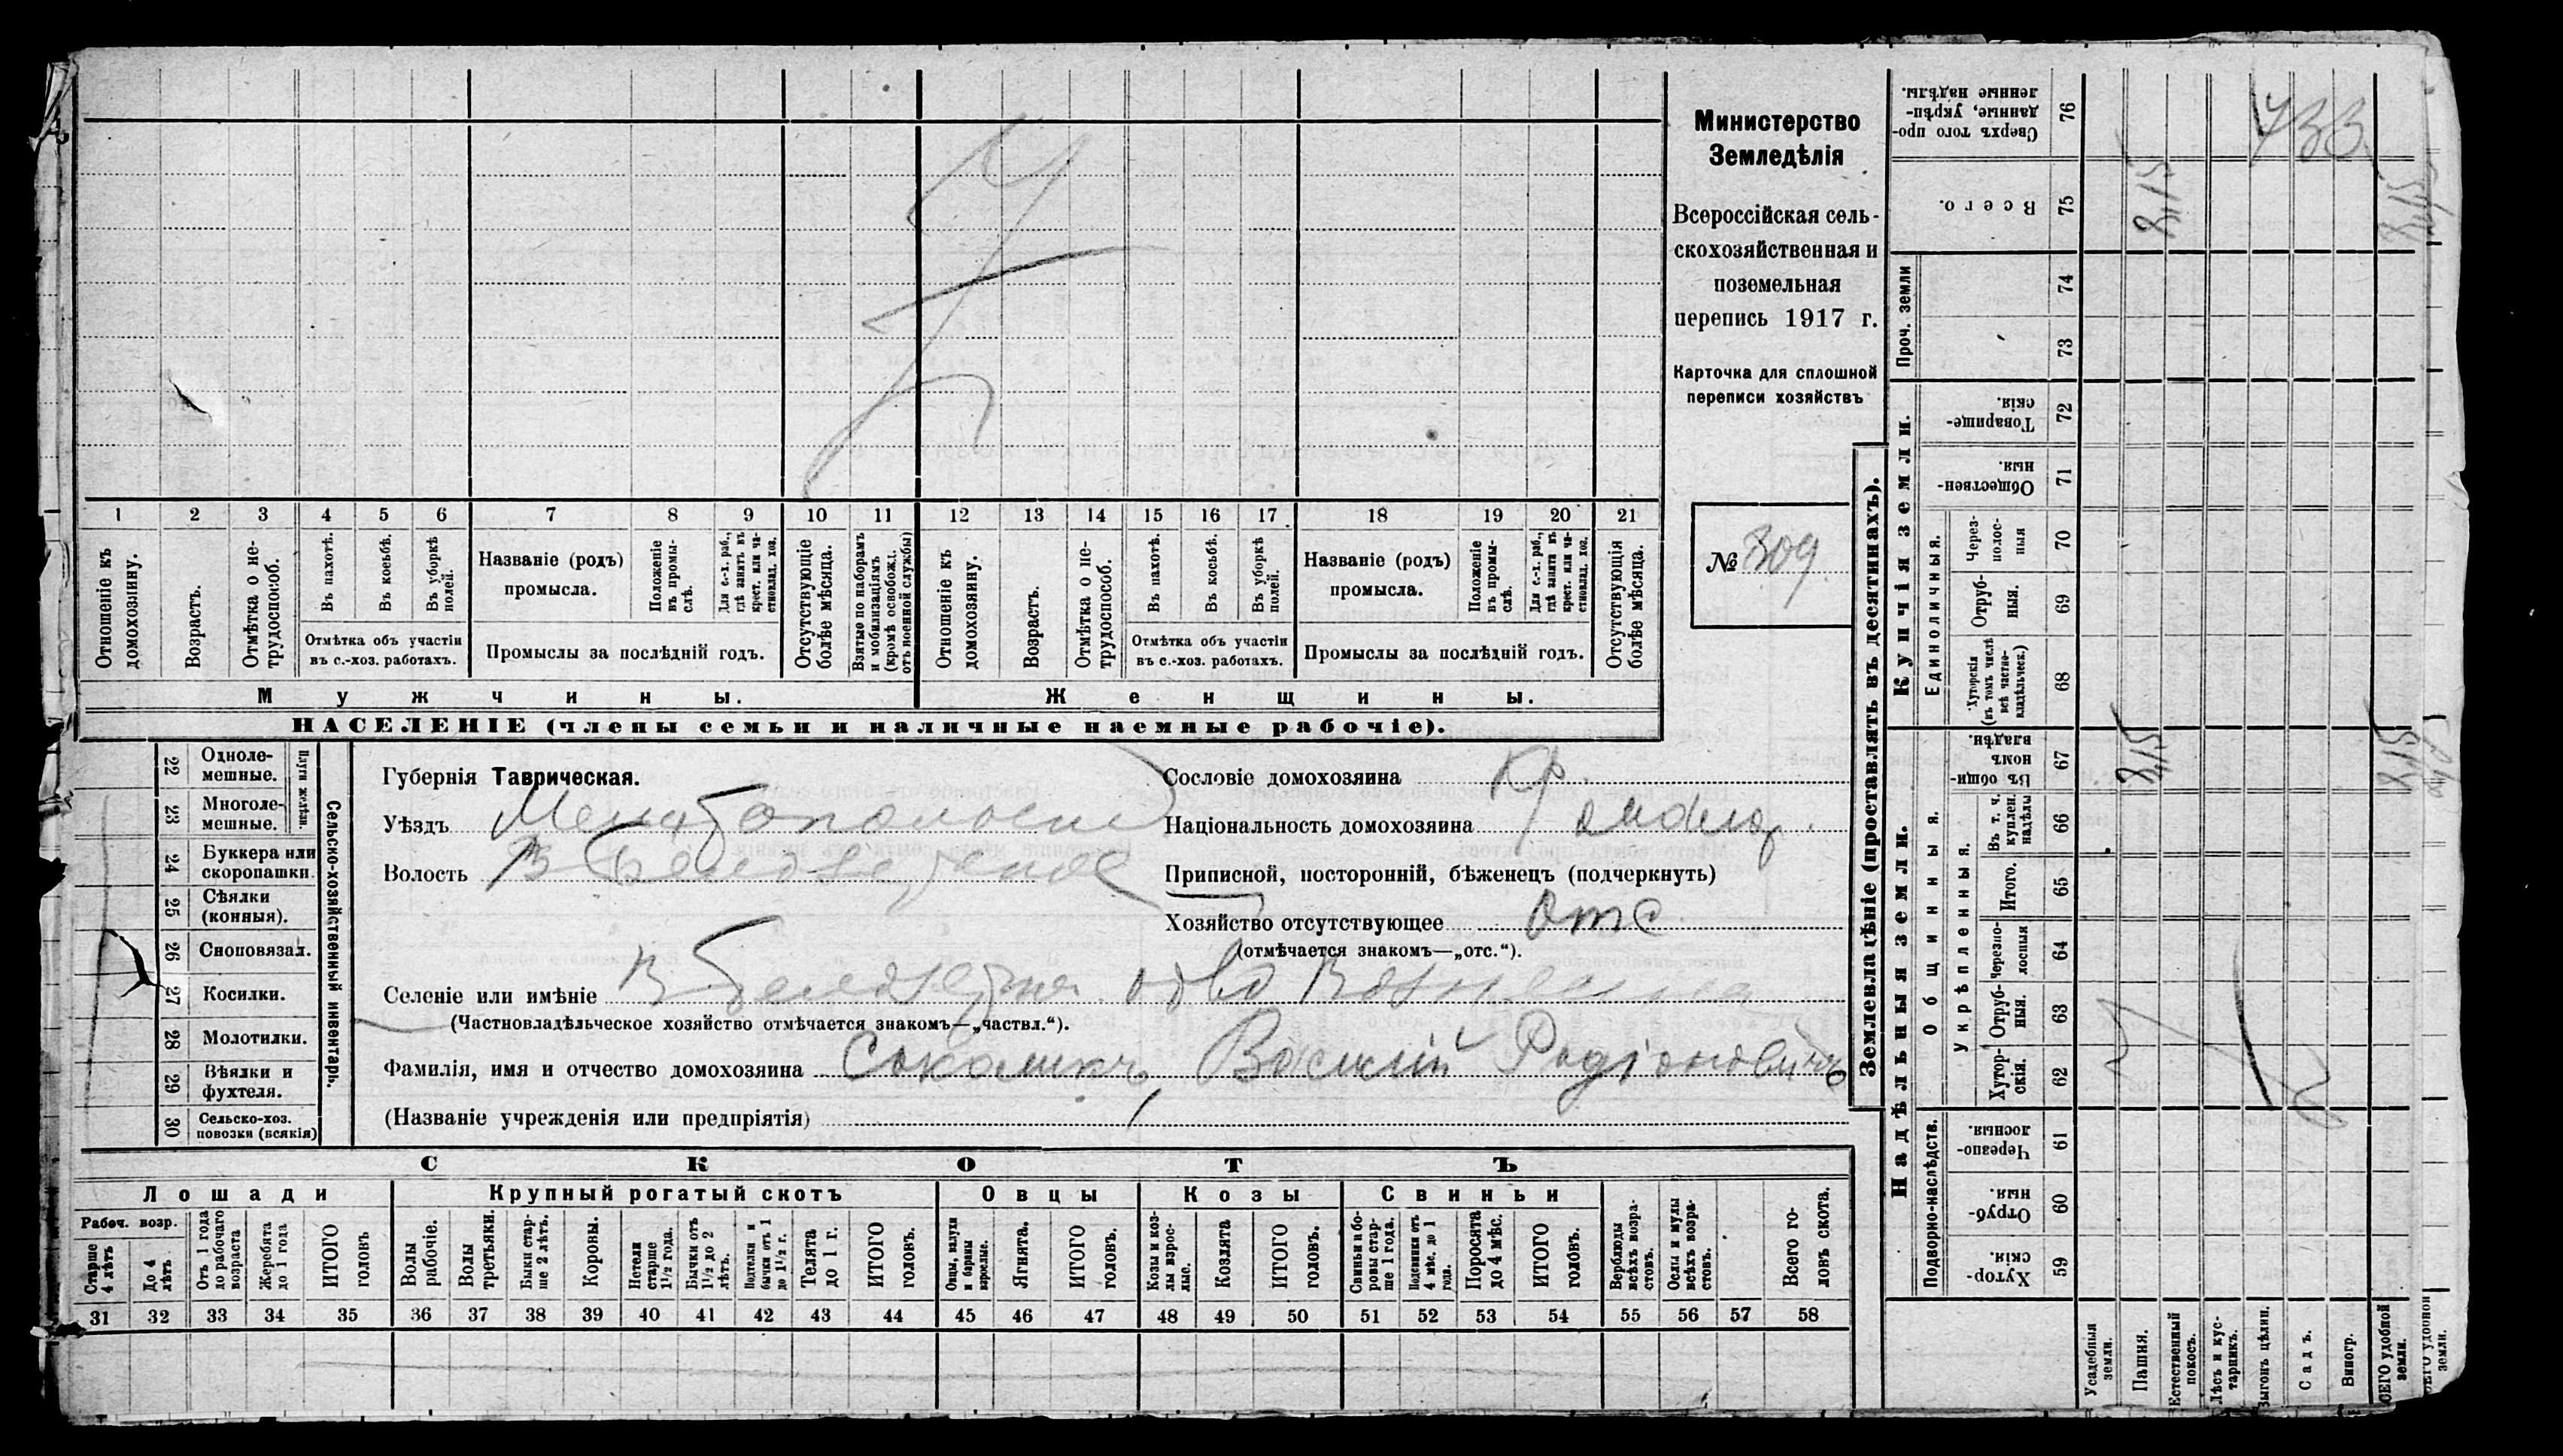 Министерство
Земледѣлія
Всероссійская сель-
скохозяйственная и
поземельная
перепись 1917 г.
Карточка для сплошной
переписи хозяйствъ
№ 309
1 2 3 4 5 6 7 8 9 10 11 12 13 14 15 16 17 18 19 20 21
Отношеніе къ домохозяину.
Возрастъ.
Отмѣтка о не-трудоспособ.
Въ пахотѣ.
Въ косьбѣ.
Въ уборкѣ полей.
Отмѣтка объ участіи
въ с.-хоз. работахъ.
Названіе (родъ)
промысла.
Положеніе въ промы-слѣ.
Для с.-х. раб., гдѣ занятъ въ крест. или ча-стновлад. хоз.
Промыслы за послѣдній годъ.
Отсутствующіе болѣе мѣсяца.
Взятые по наборамъ и мобилизаціямъ (кромѣ освобожд. отъ военной службы)
Отношеніе къ домохозяину.
Возрастъ.
Отмѣтка о не-трудоспособ.
Въ пахотѣ.
Въ косьбѣ.
Въ уборкѣ полей.
Отмѣтка объ участіи
въ с.-хоз. работахъ.
Названіе (родъ)
промысла.
Положеніе въ промы-слѣ.
Для с.-х. раб., гдѣ заняты въ крест. или ча-стновлад. хоз.
Промыслы за послѣдній годъ.
Отсутствующія болѣе мѣсяца.
Мужчины.
Женщины.
НАСЕЛЕНІЕ (члены семьи и наличные наемные рабочіе).
22 Одноле-мешные.
23 Многоле-мешные.
Плуги желѣзн.
24 Буккера или скоропашки.
25 Сѣялки (конныя).
26 Сноповязал.
27 Косилки.
28 Молотилки.
29 Вѣялки и фухтеля.
30 Сельско-хоз. повозки (всякія)
Сельско-хозяйственный инвентарь.
Губернія Таврическая.
Уѣздъ Мелитопольскій
Волость В Белозерская
Сословіе домохозяина Кр.
Національность домохозяина
Приписной, посторонній, бѣженецъ (подчеркнуть)
Хозяйство отсутствующее отс
(отмѣчается знакомъ—„отс.“).
Селеніе или имѣніе В Белозерка
(Частновладѣльческое хозяйство отмѣчается знакомъ—„частвл.“).
Фамилія, имя и отчество домохозяина Василій Родіоновичъ
(Названіе учрежденія или предпріятія)
СКОТЪ
Лошади
Крупный рогатый скотъ
Овцы
Козы
Свиньи
Рабоч. возр.
Старше 4 лѣтъ
До 4 лѣтъ
Отъ 1 года до рабочаго возраста
Жеребята до 1 года
ИТОГО головъ
Волы рабочіе.
Волы третьяки.
Быки стар-ше 2 лѣтъ.
Коровы.
Нетели старше 1½ года.
Бычки отъ 1½ до 2 лѣтъ.
Подтелки и бычки отъ 1 до 1½ г.
Телята до 1 г.
ИТОГО головъ.
Овцы, валухи и бараны взрослые.
Ягнята.
ИТОГО головъ.
Козы и коз-лы взрос-лые.
Козлята
ИТОГО головъ.
Свиньи и бо-ровы стар-ше 1 года.
Подсвинки отъ 4 мѣс. до 1 года.
Поросята до 4 мѣс.
ИТОГО головъ.
Верблюды всѣхъ возра-стовъ.
Ослы и мулы всѣхъ возра-стовъ.
Всего го-ловъ скота.
31 32 33 34 35 36 37 38 39 40 41 42 43 44 45 46 47 48 49 50 51 52 53 54 55 56 57 58
Землевладѣніе (проставлять въ десятинахъ).
Надѣльныя земли.
Купчія земли.
Проч. земли
Подворно-наслѣдств.
Общинныя.
Укрѣпленныя.
Единоличныя.
76 Сверхъ того про-данные, укрѣп-ленные надѣлы.
75 Всего.
74
73
72 Товарище-скія.
71 Обществен-ныя.
70 Через-полос-ныя
69 Отруб-ныя.
68 Хуторскія (въ томъ числѣ всѣ частно-владѣльческ.)
67 Въ общин-номъ владѣн.
66 Въ т. ч. куплен. надѣлы
65 Итого.
64 Черезпо-лосныя
63 Отруб-ныя.
62 Хутор-скія.
61 Черезпо-лосныя.
60 Отруб-ныя.
59 Хутор-скія.
Усадебныя земли.
Пашня.
Естественный покосъ.
Лѣсъ и кус-тарникъ.
Выгонъ цѣлин.
Садъ.
Виногр.
ВСЕГО удобной земли.
733